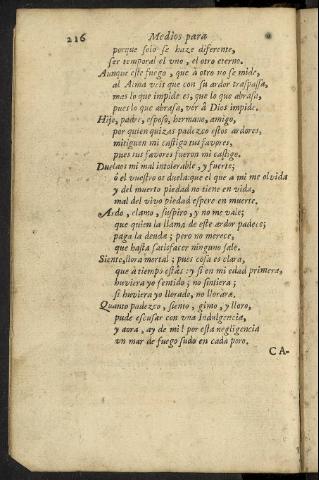 216 Medios para
porque solo se haze diferente,
ser temporal el vno, el otro eterno.
Aunque este fuego, que à otro no se mide,
al Alma veis que con su ardor traspassa,
mas lo que impide es, que lo que abrasa,
pues lo que abrasa, ver à Dios impide.
Hijo, padre, esposo, hermano, amigo,
por quien quizas padezco estos ardores,
mitiguen mi castigo tus favores,
pues tus favores fueron mi castigo.
Duelaos mi mal intolerable, y fuerte;
ò el vuestro os duela: que el que a mi me olvida
y del muerto piedad no tiene en vida,
mal del vivo piedad espere en muerte.
Ardo, clamo, suspiro, y no me vale;
que quien la llama de este ardor padece;
paga la deuda; pero no merece,
que hasta satisfacer ninguno sale.
Siente, llora mortal; pues cosa es clara,
que à tiempo estàs: y si en mi edad primera,
huviera yo sentido; no sintiera;
si huviera yo llorado, no llorara.
Quanto padezco, siento, gimo, y lloro,
pude escusar con vna Indulgencia,
y aora, ay de mi! por esta negligencia
vn mar de fuego sudo en cada poro.
CA-